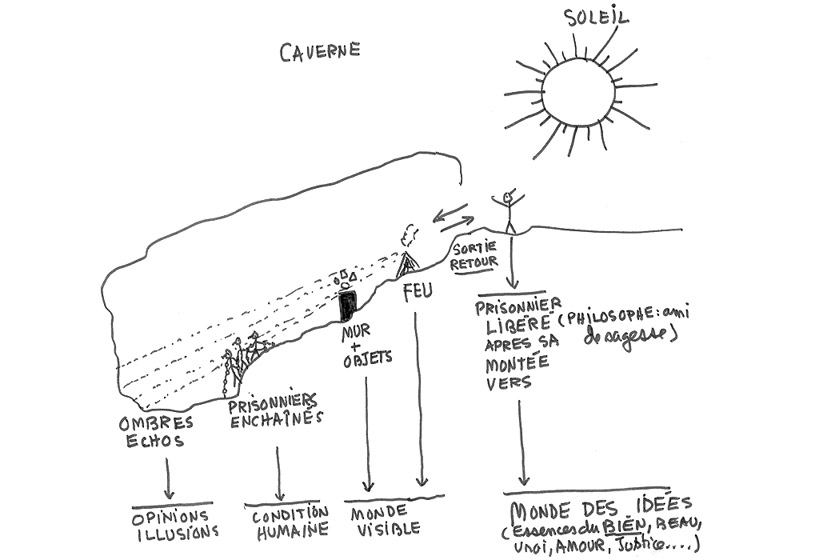 SOLEIL
CAVERNE
SORTIE
RETOUR
FEU
MUR
+
OBJETS
PRISONNIER
LIBÉRÉ (PHILOSOPHE: ami
de sagesse)
APRES SA
MONTÉE
VERS
PRISONNIERS
ENCHAÎNÉS
OMBRES
ECHOS
OPINIONS
ILLUSIONS
CONDITION
HUMAINE
MONDE
VISIBLE
MONDE DES IDÉES
(Essences du BIEN, BEAU,
vrai, AMOUR, Justice....)